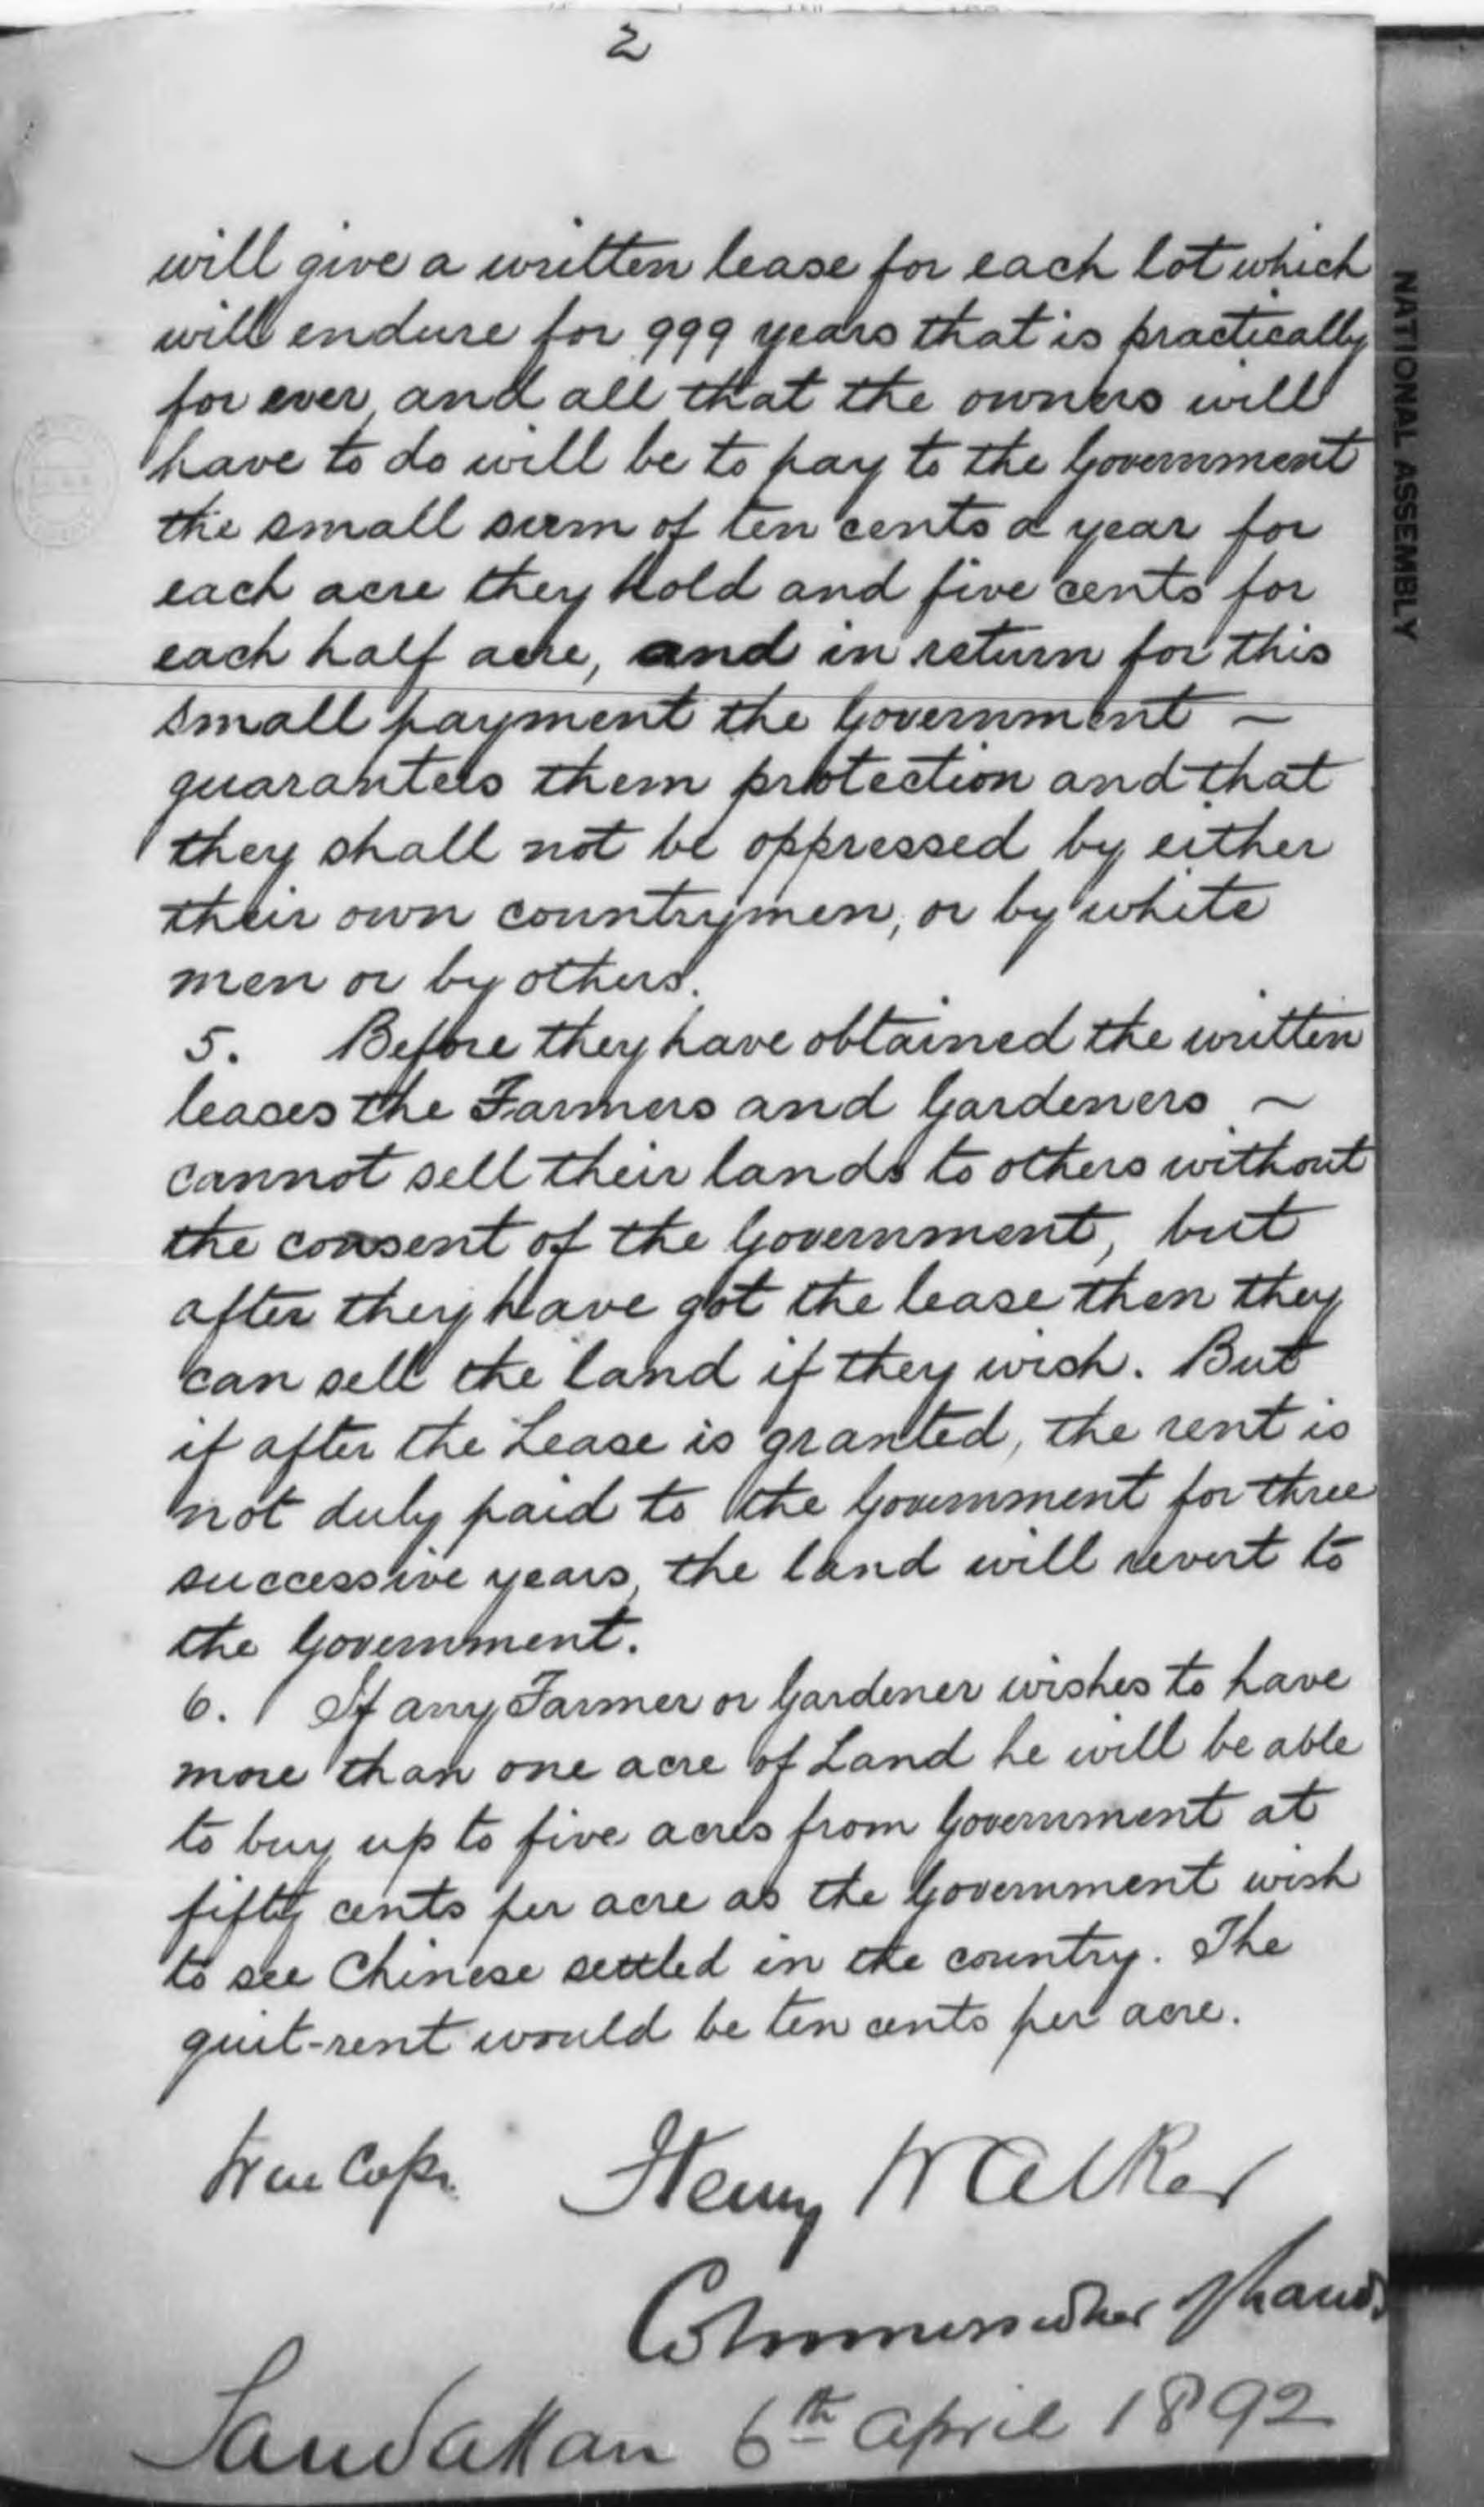 2
will give a written lease for each lot which
will endure for 999 years that is practically
for ever, and all that the owners will
have to do will be to pay to the Government
the small sum of ten cents a year for
each acre they hold and five cents for
each half acre, and in return for this
small payment the Government ~
guarantees them protection and that
they shall not be oppressed by either
their own countrymen, or by white
men or by others.
5. Before they have obtained the written
leases the Farmers and Gardeners ~
cannot sell their lands to others without
the consent of the Government, but
after they have got the lease then they
can sell the land if they wish. But
if after the Lease is granted, the rent is
not duly paid to the Government for three
successive years, the land will revert to
the Government.
6. If any Farmer or Gardener wishes to have
more than one acre of Land he will be able
to buy up to five acres from Government at
fifty cents per acre as the Government wish
to see Chinese settled in the country. The
quit-rent would be ten cents per acre.
True Copy. Henry Walker
Commissioner of Lands
Sandakan 6th April 1892
NATIONAL ASSEMBLY